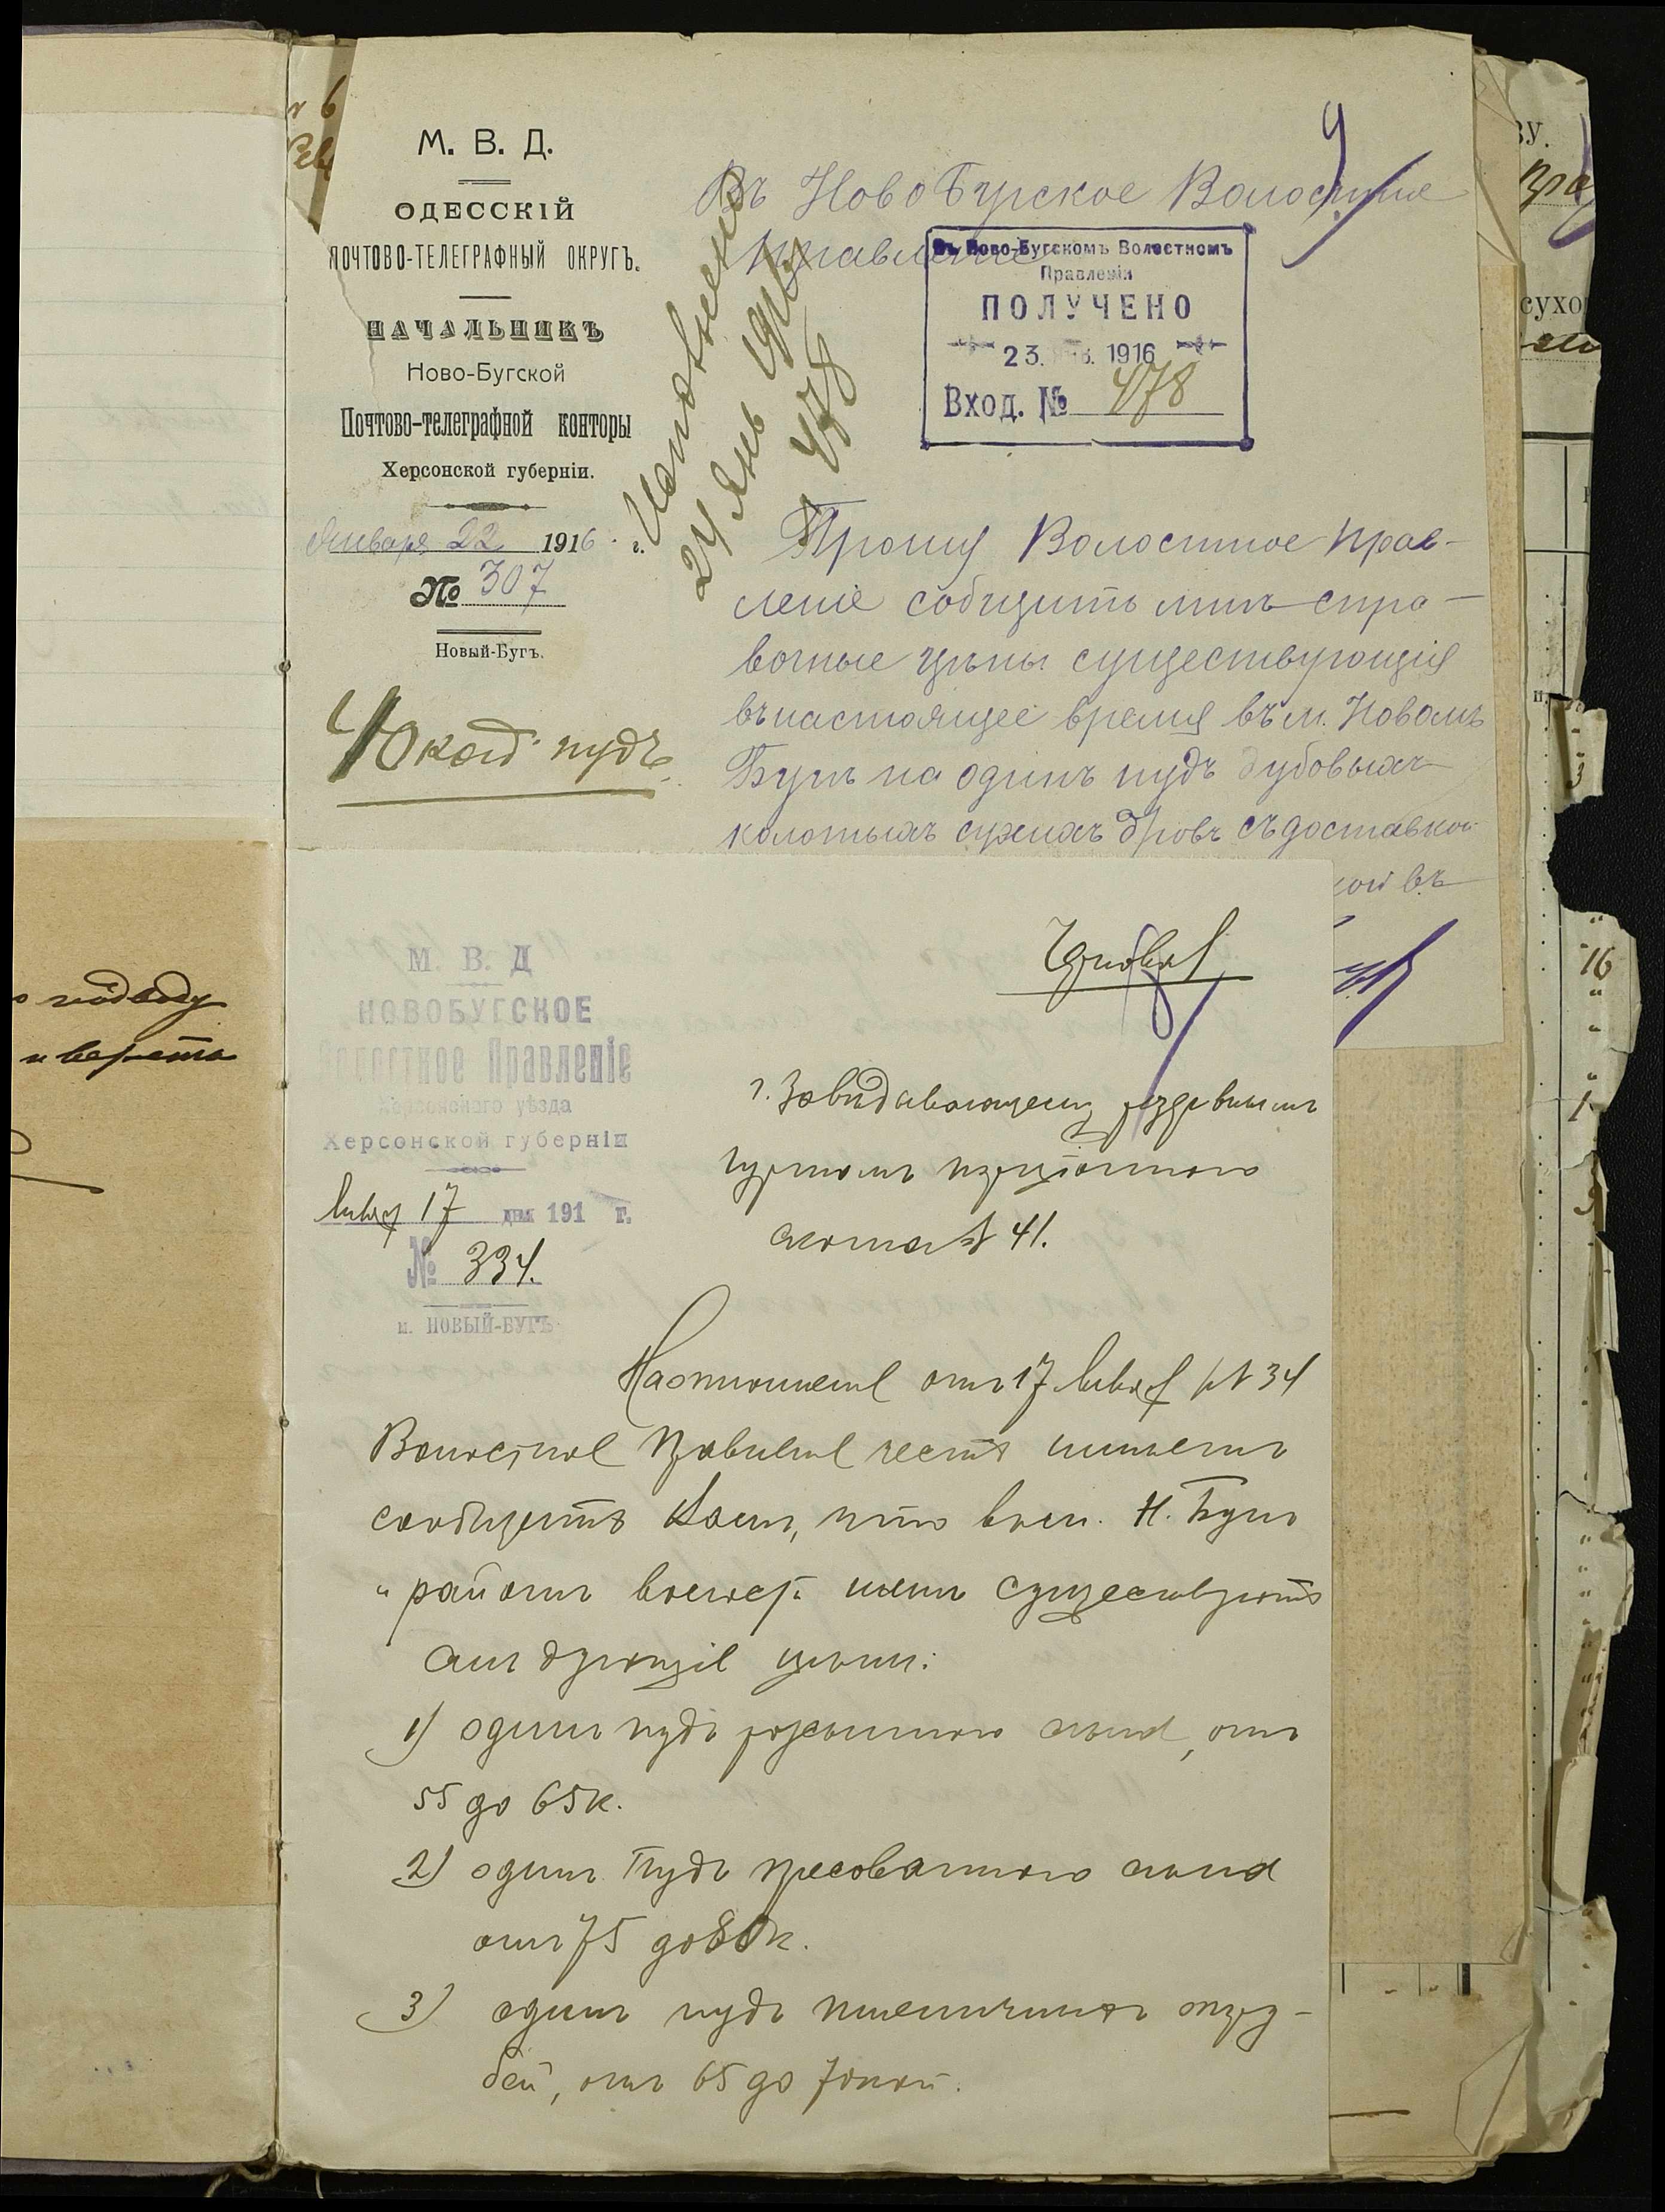 М. В. Д.
ОДЕССКІЙ
ПОЧТОВО-ТЕЛЕГРАФНЫЙ ОКРУГЪ.
НАЧАЛЬНИКЪ
Ново-Бугской
Почтово-телеграфной конторы
Херсонской губерніи.
Января 22 1916 г.
№ 307
Новый-Бугъ.
40 коп. пудъ.
Исполнено
24 Янв 1916
№ 478
Въ НовоБугское Волостное
Правленіе
Въ Ново-Бугскомъ Волостномъ
Правленіи
ПОЛУЧЕНО
23. 1916
Вход. № 478
Прошу Волостное Прав-
леніе собщить мнѣ спра-
вочные цѣны существующія
въ настоящее время въ м. Новомъ
Бугѣ на одинъ пудъ дубовыхъ
колотыхъ сухихъ дровъ съ доставкой
кой въ
М. В. Д
НОВОБУГСКОЕ
Волостное Правленіе
Херсонского уѣзда
Херсонской губерніи
Января 17 дня 191 г.
№ 334.
м. НОВЫЙ-БУГЪ
г. Завѣдывающему
гуртомъ порціонного
скота № 41.
На отношеніе отъ 17 Января № 34
Волостное Правленіе честь имѣетъ
сообщить Вамъ, что въ м. Н. Бугѣ
и районѣ волости существуютъ
слѣдующіе цѣны:
1) одинъ пудъ сѣна, отъ
55 до 65 к.
2) одинъ пудъ пресованного сѣна
отъ 75 до 80 к.
3) одинъ пудъ пшеничныхъ отру-
бей, отъ 65 до 70 коп.
подводу
и верста